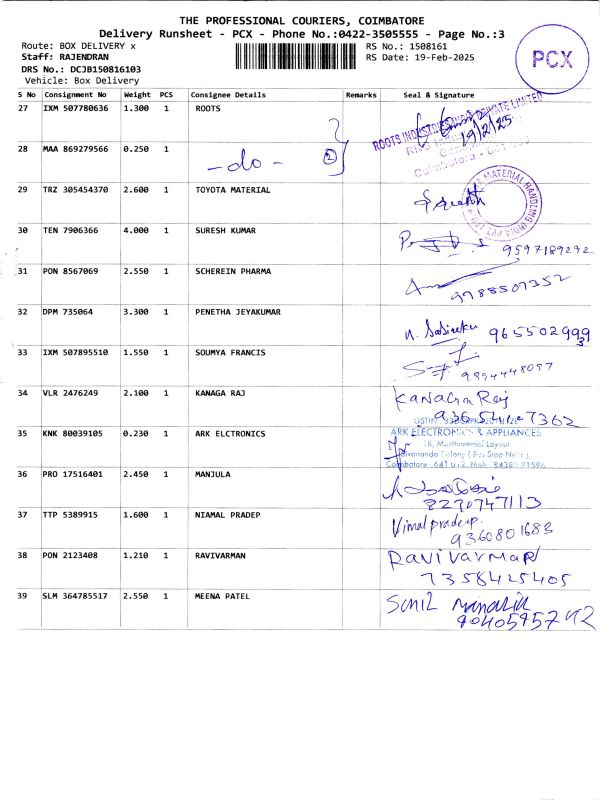 THE PROFESSIONAL COURIERS, COIMBATORE
Delivery Runsheet - PCX - Phone No.:0422-3505555 - Page No.:3
Route: BOX DELIVERY x
RS No.: 1508161
Staff: RAJENDRAN
RS Date: 19-Feb-2025
DRS No.: DCJB150816103
Vehicle: Box Delivery
PCX
S No Consignment No Weight PCS Consignee Details Remarks Seal & Signature
27 IXM 507780636 1.300 1 ROOTS
19/2/25
28 MAA 869279566 0.250 1 -do- 2
29 TRZ 305454370 2.600 1 TOYOTA MATERIAL
30 TEN 7906366 4.000 1 SURESH KUMAR
9597189292
31 PON 8567069 2.550 1 SCHEREIN PHARMA
9788507352
32 DPM 735064 3.300 1 PENETHA JEYAKUMAR
33 IXM 507895510 1.550 1 SOUMYA FRANCIS
9894448097
34 VLR 2476249 2.100 1 KANAGA RAJ
Kanaga Raj
35 KNK 80039105 0.230 1 ARK ELCTRONICS
ARK ELECTRONICS & APPLIANCES
36 PRO 17516401 2.450 1 MANJULA
8220747113
37 TTP 5389915 1.600 1 NIAMAL PRADEP
Vimal pradeep.
9360801683
38 PON 2123408 1.210 1 RAVIVARMAN
RAVIVARMAN
7358425405
39 SLM 364785517 2.550 1 MEENA PATEL